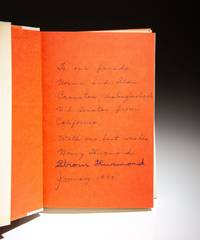 To our friends
Norma and Alan
Cranston, distinguished
U.S. Senator from
California
With our best wishes
Nancy Thurmond
Strom Thurmond
January